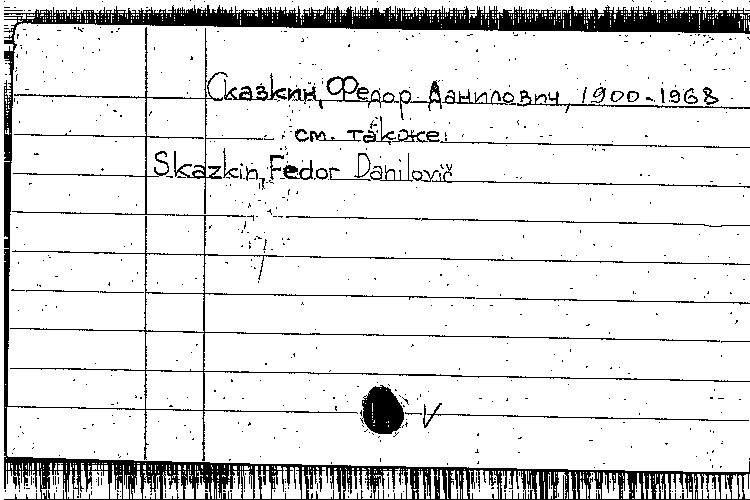 Сказкин, Федор Данилович, 1900-1968
см. также:
Skazkin, Fedor Danilovič
V